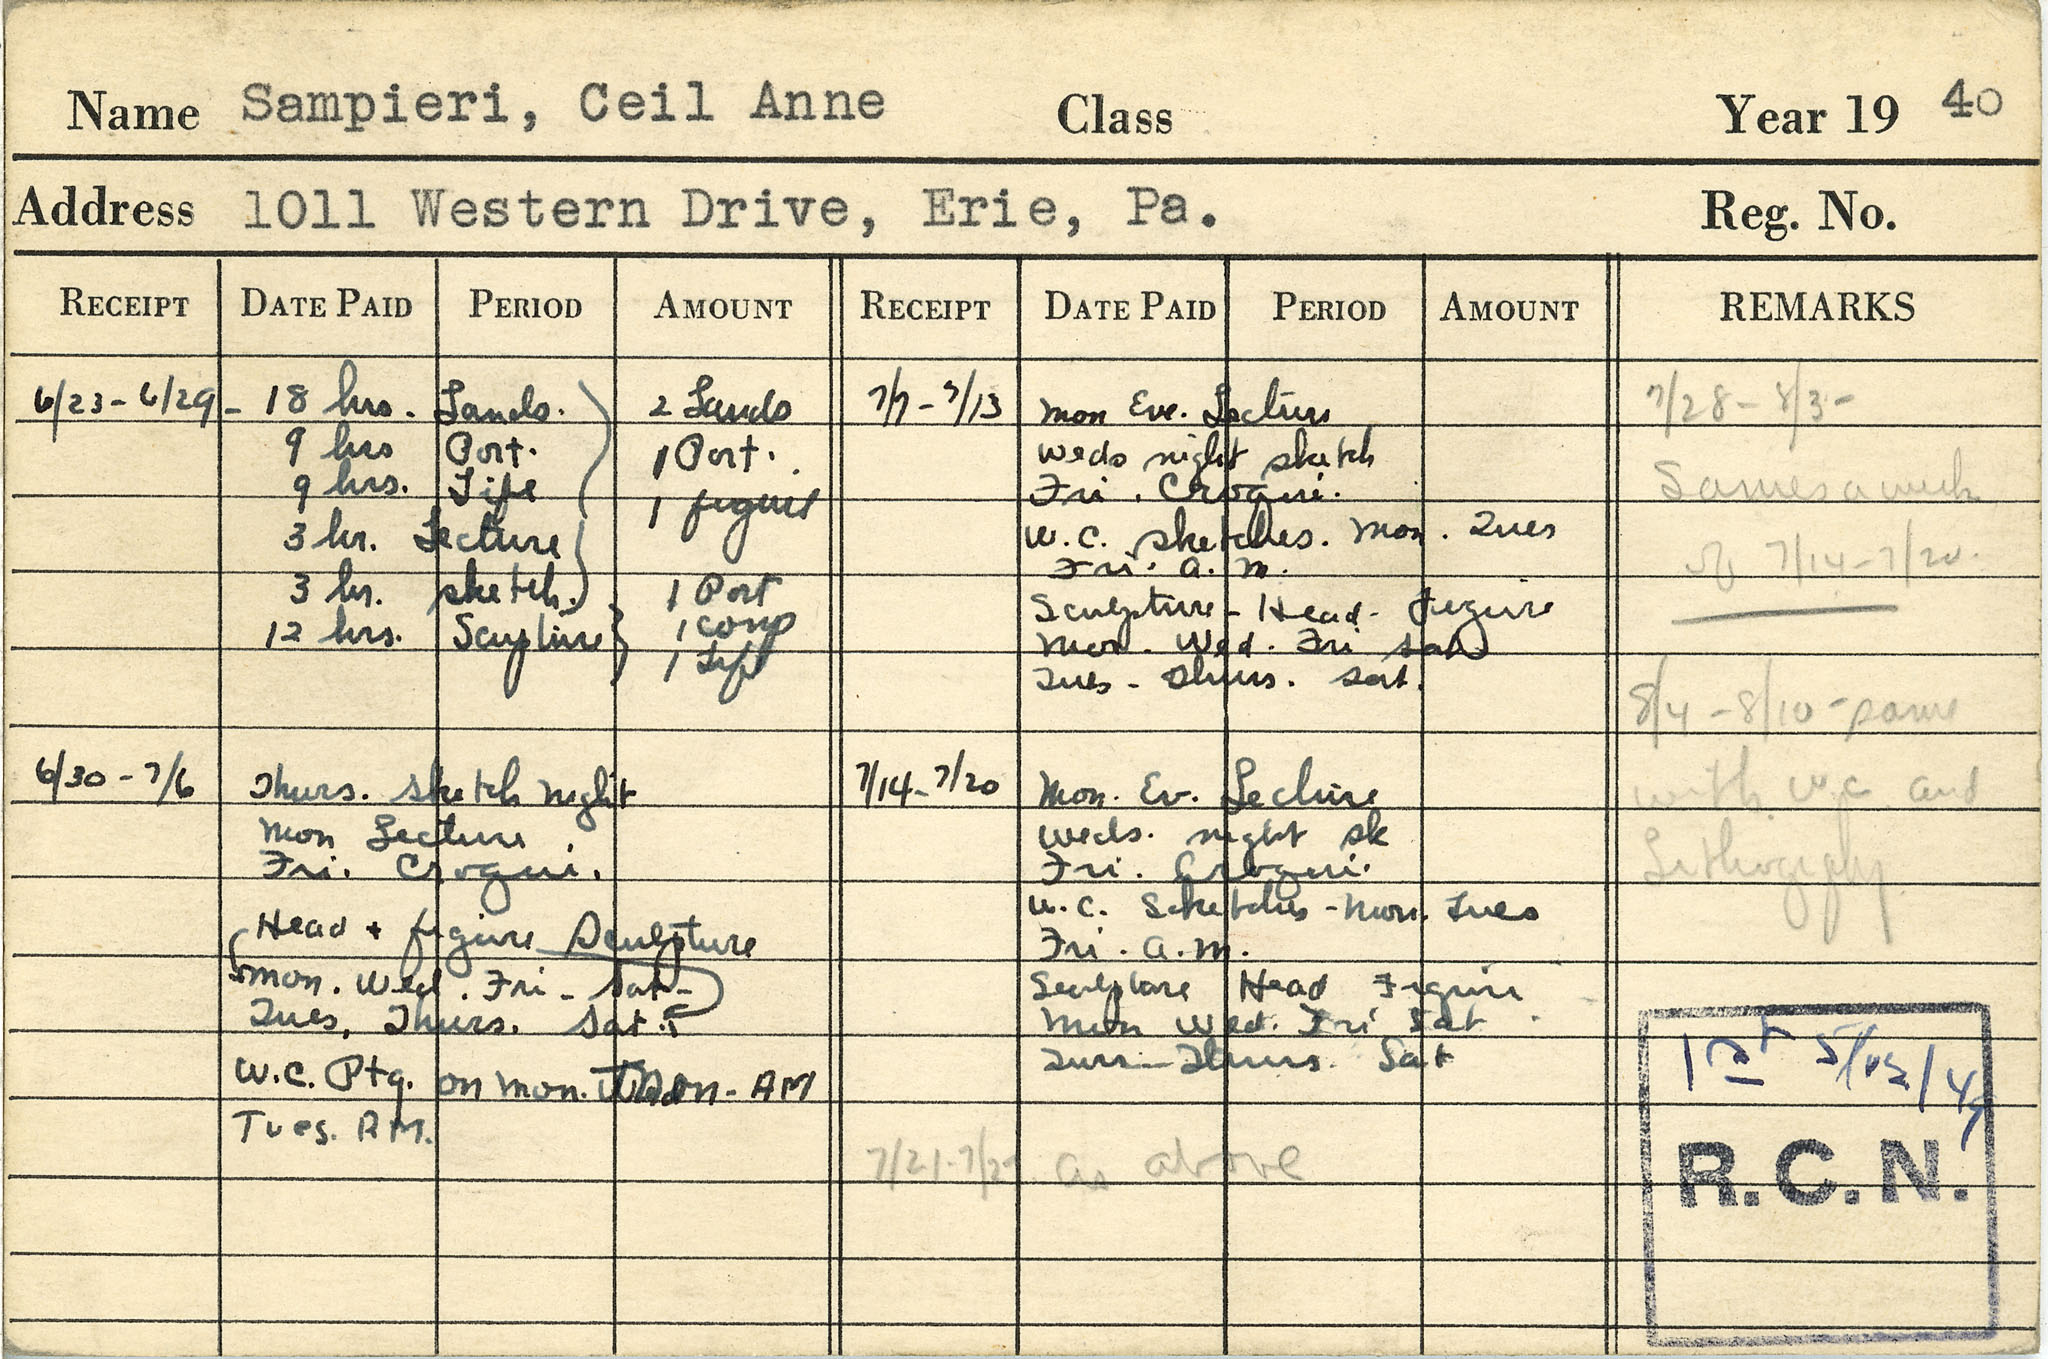 Name Sampieri, Ceil Anne Class Year 19 40
Address 1011 Western Drive, Erie, Pa. Reg. No.
RECEIPT DATE PAID PERIOD AMOUNT RECEIPT DATE PAID PERIOD AMOUNT REMARKS
6/23-6/29- 18 hrs. Lands. 2 Lands
9 hrs Port. 1 Port.
9 hrs. Life 1 figure
3 hr. Lecture
3 hr. sketch. 1 Port
12 hrs. Sculpture 1 comp
1 Life
6/30-7/6 Thurs. sketch night
Mon Lecture
Fri. Croqui.
Head + figure Sculpture
Mon. Wed. Fri - Sat-
Tues, Thurs. Sat.
W.C. Ptg. on Mon. AM
Tues. AM.
7/7-7/13 Mon Eve. Lecture
Weds night sketch
Fri. Croqui.
W.C. sketches. Mon. Tues
Fri. A.M.
Sculpture - Head - Figure
Mon. Wed. Fri Sat
Tues - Thurs. Sat.
7/14-7/20 Mon. Ev. Lecture
Weds. night sk
Fri. Croqui.
W.C. Sketches - Mon. Tues
Fri. A.M.
Sculpture Head Figure
Mon Wed. Fri Sat
Tues - Thurs. Sat
7/21-7/2 as above
7/28-8/3-
Same as week
of 7/14-7/20.
8/4-8/10-same
with W.C. and
Lithography.
1st
R.C.N.